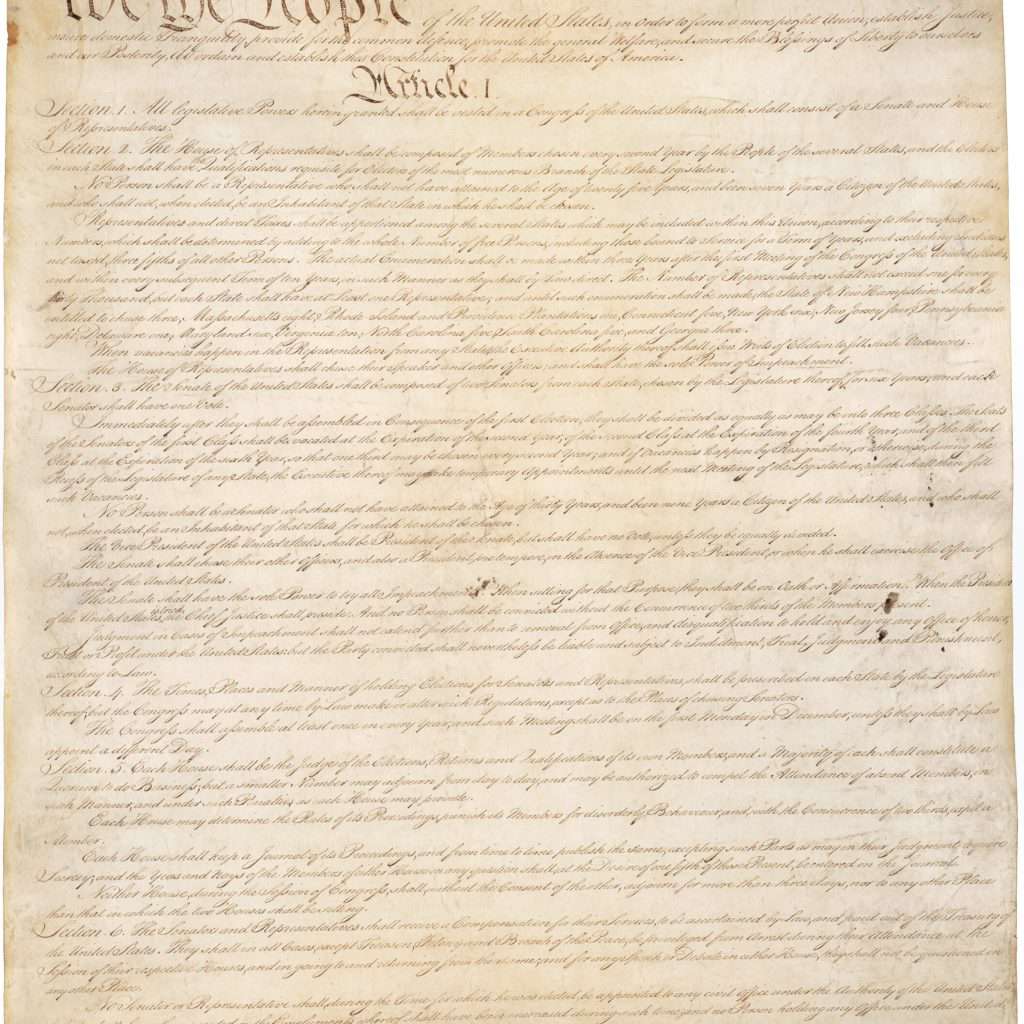 We the People of the United States, in Order to form a more perfect Union, establish Justice,
insure domestic Tranquility, provide for the common defence, promote the general Welfare, and secure the Blessings of Liberty to ourselves
and our Posterity, do ordain and establish this Constitution for the United States of America.
Article. I.
Section. 1. All legislative Powers herein granted shall be vested in a Congress of the United States, which shall consist of a Senate and House
of Representatives.
Section. 2. The House of Representatives shall be composed of Members chosen every second Year by the People of the several States, and the Electors
in each State shall have the Qualifications requisite for Electors of the most numerous Branch of the State Legislature.
No Person shall be a Representative who shall not have attained to the Age of twenty five Years, and been seven Years a Citizen of the United States,
and who shall not, when elected, be an Inhabitant of that State in which he shall be chosen.
Representatives and direct Taxes shall be apportioned among the several States which may be included within this Union, according to their respective
Numbers, which shall be determined by adding to the whole Number of free Persons, including those bound to Service for a Term of Years, and excluding Indians
not taxed, three fifths of all other Persons. The actual Enumeration shall be made within three Years after the first Meeting of the Congress of the United States,
and within every subsequent Term of ten Years, in such Manner as they shall by Law direct. The Number of Representatives shall not exceed one for every
thirty Thousand, but each State shall have at Least one Representative; and until such enumeration shall be made, the State of New Hampshire shall be
entitled to chuse three, Massachusetts eight, Rhode-Island and Providence Plantations one, Connecticut five, New-York six, New Jersey four, Pennsylvania
eight, Delaware one, Maryland six, Virginia ten, North Carolina five, South Carolina five, and Georgia three.
When vacancies happen in the Representation from any State, the Executive Authority thereof shall issue Writs of Election to fill such Vacancies.
The House of Representatives shall chuse their Speaker and other Officers; and shall have the sole Power of Impeachment.
Section. 3. The Senate of the United States shall be composed of two Senators from each State, chosen by the Legislature thereof, for six Years; and each
Senator shall have one Vote.
Immediately after they shall be assembled in Consequence of the first Election, they shall be divided as equally as may be into three Classes. The Seats
of the Senators of the first Class shall be vacated at the Expiration of the second Year, of the second Class at the Expiration of the fourth Year, and of the third
Class at the Expiration of the sixth Year, so that one third may be chosen every second Year; and if Vacancies happen by Resignation, or otherwise, during the
Recess of the Legislature of any State, the Executive thereof may make temporary Appointments until the next Meeting of the Legislature, which shall then fill
such Vacancies.
No Person shall be a Senator who shall not have attained to the Age of thirty Years, and been nine Years a Citizen of the United States, and who shall
not, when elected, be an Inhabitant of that State for which he shall be chosen.
The Vice President of the United States shall be President of the Senate, but shall have no Vote, unless they be equally divided.
The Senate shall chuse their other Officers, and also a President pro tempore, in the Absence of the Vice President, or when he shall exercise the Office of
President of the United States.
The Senate shall have the sole Power to try all Impeachments. When sitting for that Purpose, they shall be on Oath or Affirmation. When the President
of the United States is tried, the Chief Justice shall preside: And no Person shall be convicted without the Concurrence of two thirds of the Members present.
Judgment in Cases of Impeachment shall not extend further than to removal from Office, and disqualification to hold and enjoy any Office of honor,
Trust or Profit under the United States: but the Party convicted shall nevertheless be liable and subject to Indictment, Trial, Judgment and Punishment,
according to Law.
Section. 4. The Times, Places and Manner of holding Elections for Senators and Representatives, shall be prescribed in each State by the Legislature
thereof; but the Congress may at any time by Law make or alter such Regulations, except as to the Places of chusing Senators.
The Congress shall assemble at least once in every Year, and such Meeting shall be on the first Monday in December, unless they shall by Law
appoint a different Day.
Section. 5. Each House shall be the Judge of the Elections, Returns and Qualifications of its own Members, and a Majority of each shall constitute a
Quorum to do Business; but a smaller Number may adjourn from day to day, and may be authorized to compel the Attendance of absent Members, in
such Manner, and under such Penalties as each House may provide.
Each House may determine the Rules of its Proceedings, punish its Members for disorderly Behaviour, and, with the Concurrence of two thirds, expel a
Member.
Each House shall keep a Journal of its Proceedings, and from time to time publish the same, excepting such Parts as may in their Judgment require
Secrecy; and the Yeas and Nays of the Members of either House on any question shall, at the Desire of one fifth of those Present, be entered on the Journal.
Neither House, during the Session of Congress, shall, without the Consent of the other, adjourn for more than three days, nor to any other Place
than that in which the two Houses shall be sitting.
Section. 6. The Senators and Representatives shall receive a Compensation for their Services, to be ascertained by Law, and paid out of the Treasury of
the United States. They shall in all Cases, except Treason, Felony and Breach of the Peace, be privileged from Arrest during their Attendance at the
Session of their respective Houses, and in going to and returning from the same; and for any Speech or Debate in either House, they shall not be questioned in
any other Place.
No Senator or Representative shall, during the Time for which he was elected, be appointed to any civil Office under the Authority of the United States,
which shall have been created, or the Emoluments whereof shall have been encreased during such time; and no Person holding any Office under the United